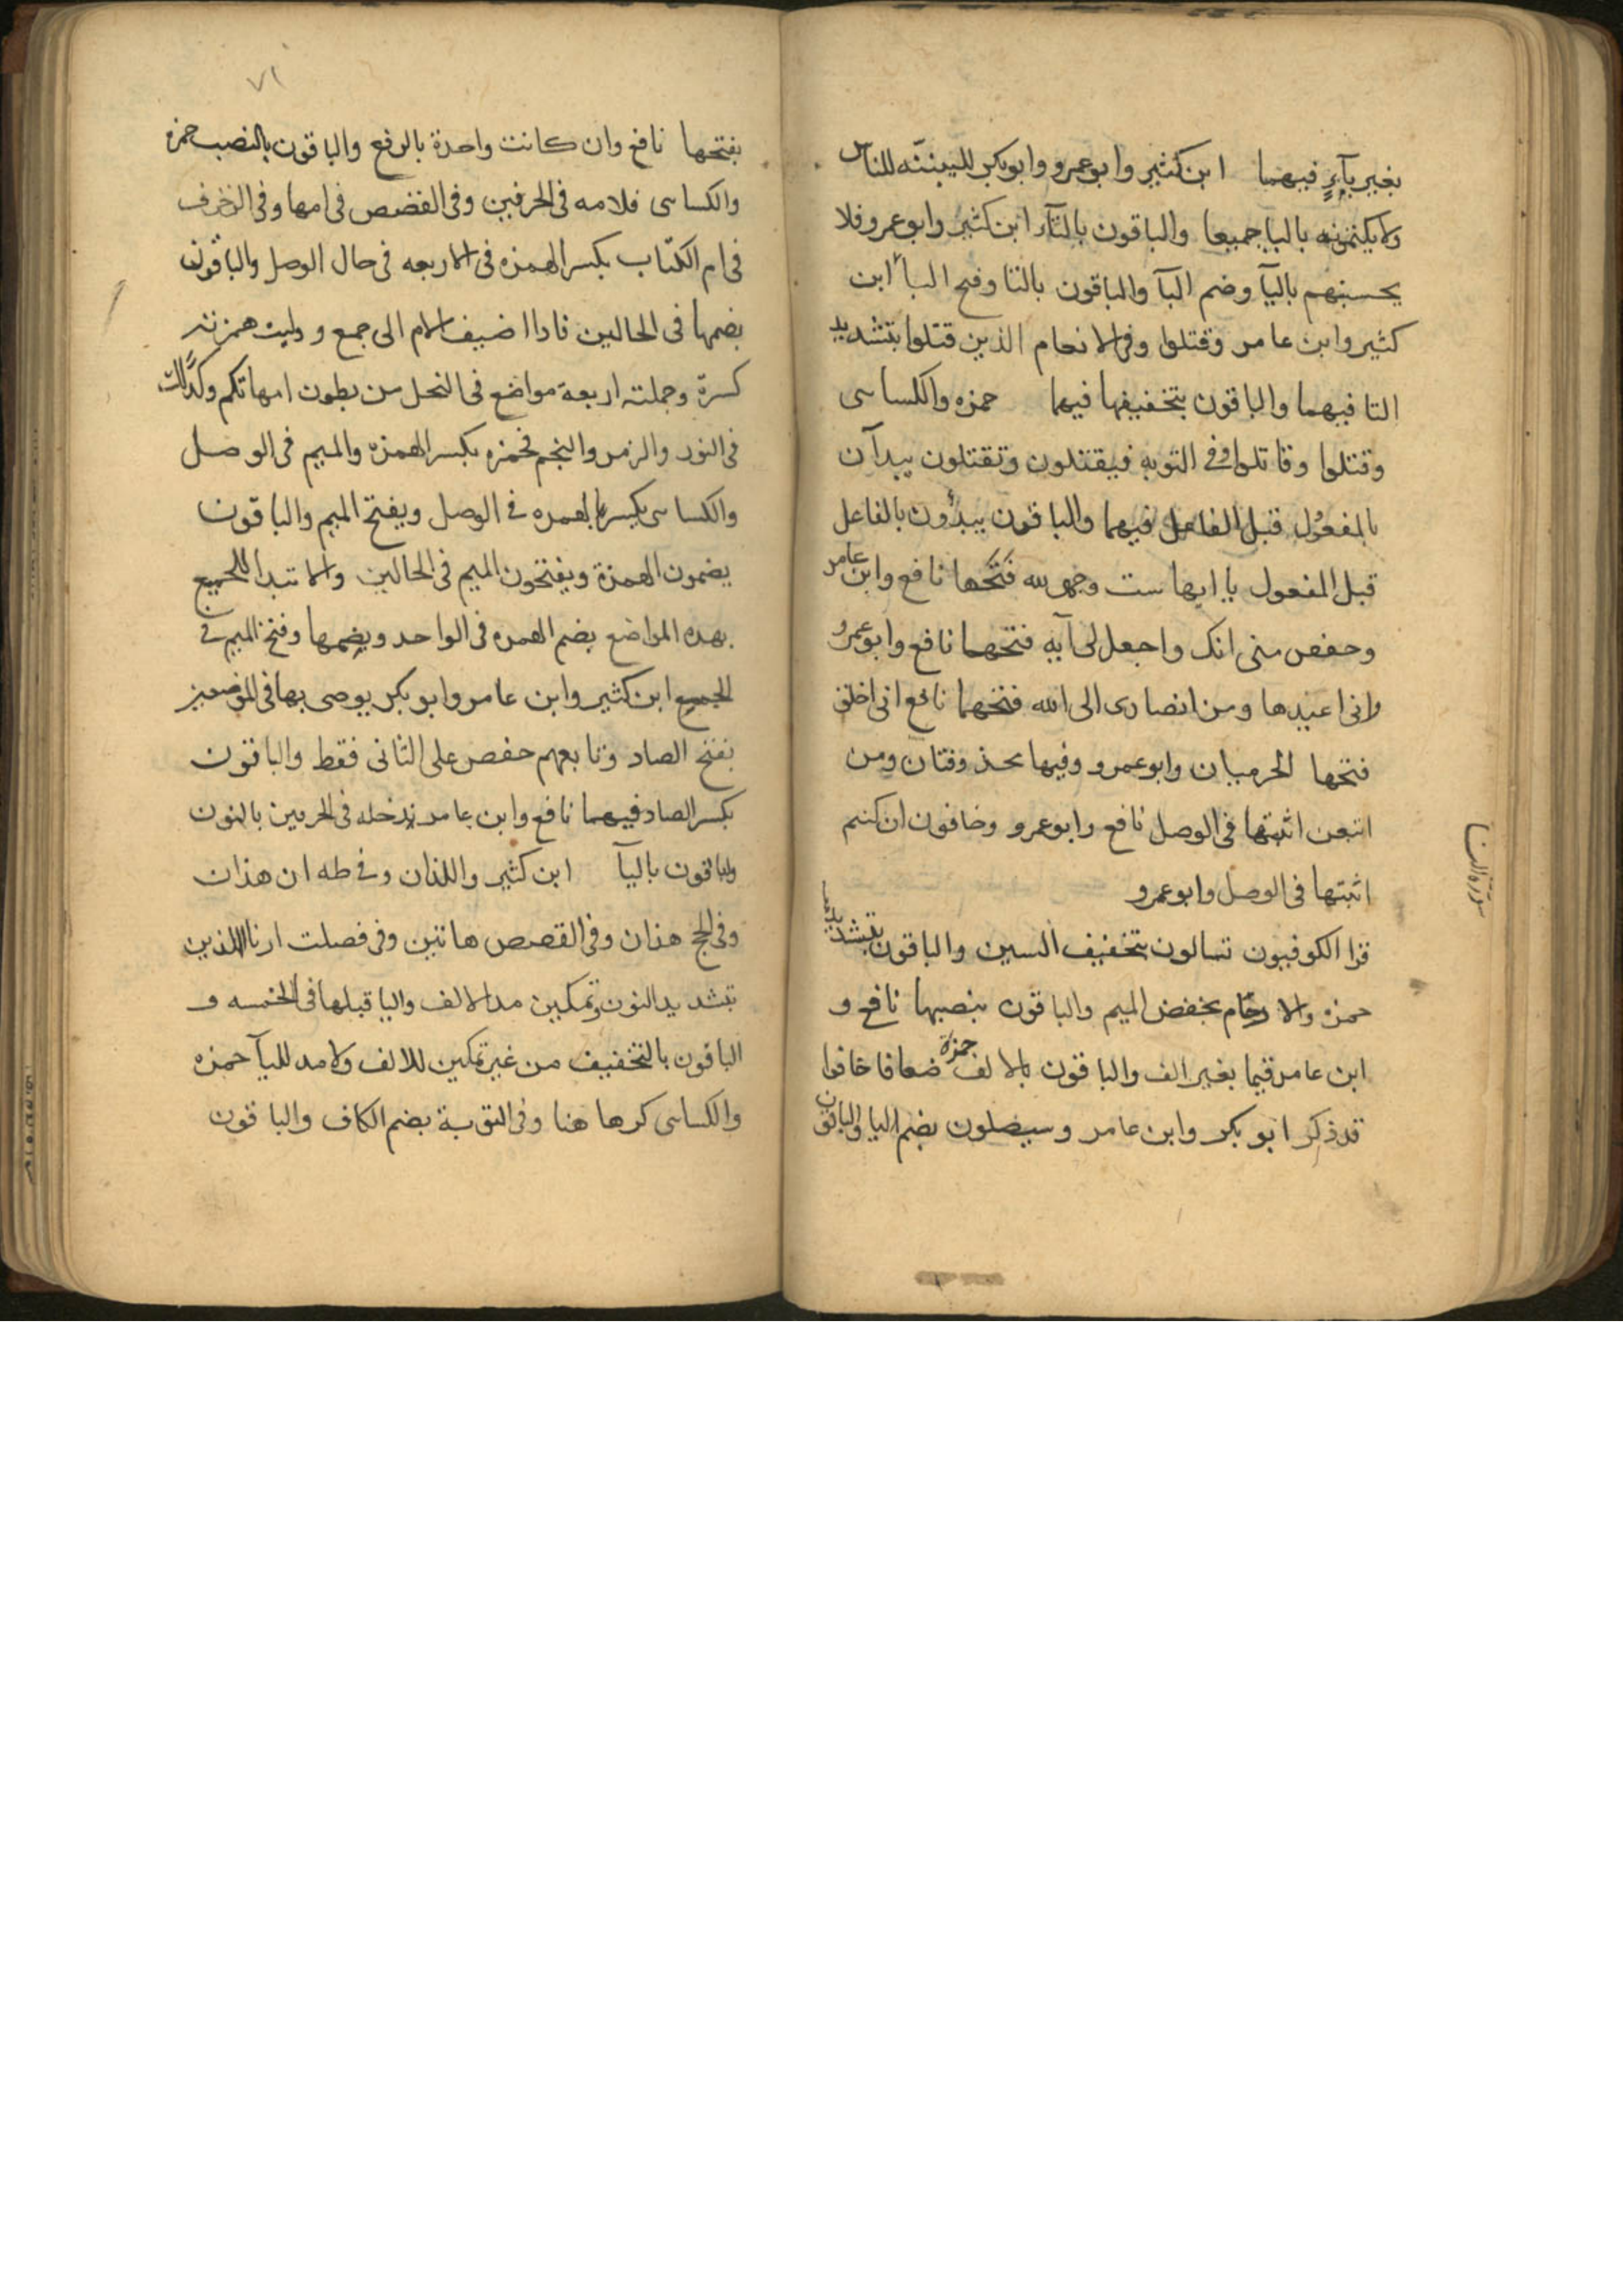 بغير يآءٍ فيهما ابن كثير وابو عمرو وابو بكر لليبيننه للناس
ولا يكتمونه باليا جميعا والباقون بالتآء ابن كثير وابو عمرو فلا
يحسبنهم باليآ وضم البآ والباقون بالتا وفتح البآ ابن
كثير وابن عامر وقتلوا وفى الانعام الذين قتلوا بتشديد
التا فيهما والباقون بتخفيفها فيهما حمزه والكساىى
وقتلوا وقاتلوا وفى التوبه فيقتلون وتقتلون يبدآن
بالمفعول قبل الفاعل فيهما والباقون يبدؤن بالفاعل
قبل المفعول يا ايها ست وجهى لله فتحها نافع وابن عامر
وحفص منى انك واجعل لى آيه فتحهما نافع وابو عمرو
وانى اعيذها ومن انصارى الى الله فتحهما نافع انى اخلق
فتحها الحرميان وابو عمرو وفيها محذوفتان ومن
اتبعن اثبتها فى الوصل نافع وابو عمرو وخافون ان كنتم
اثبتها فى الوصل وابو عمرو
سورة النسا
قرا الكوفيون تسالون بتخفيف السين والباقون بتشديدها
حمزه والارحام بخفض الميم والباقون بنصبها نافع و
ابن عامر قيما بغير الف والباقون بالالف حمزة ضعافا خافوا
قد ذكر ابو بكر وابن عامر وسيصلون بضم اليا والباقون
٧١
بفتحها نافع وان كانت واحدة بالرفع والباقون بالنصب حمزه
والكساىى فلامه فى الحرفين وفى القصص فى امها وفى الزخرف
فى ام الكتاب بكسر الهمزه فى الاربعه فى حال الوصل والباقون
بضمها فى الحالين فاذا اضيف الام الى جمع ووليت همزته
كسرة وجملته اربعة مواضع فى النحل من بطون امهاتكم وكذلك
فى النور والزمر والنجم فحمزه بكسر الهمزه والميم فى الوصل
والكساىى بكسر الهمزه فى الوصل ويفتح الميم والباقون
يضمون الهمزة ويفتحون الميم فى الحالين والابتدا للجميع
بهذه المواضع بضم الهمزه فى الواحد وبضمها وفتح الميم فى
الجميع ابن كثير وابن عامر وابو بكر يوصى بها فى الموضعين
بفتح الصاد وتابعهم حفص على الثانى فقط والباقون
بكسر الصاد فيهما نافع وابن عامر ندخله فى الحرفين بالنون
والباقون باليآ ابن كثير واللذان وفى طه ان هذان
وفى الحج هذان وفى القصص هاتين وفى فصلت ارنا اللذين
بتشديد النون وتمكين مد الالف واليا قبلها فى الخمسه و
الباقون بالتخفيف من غير تمكين للالف ولا مد لليآ حمزه
والكساىى كرها هنا وفى التوبة بضم الكاف والباقون